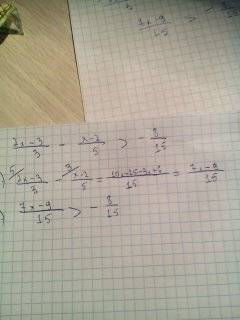 7x-9/15 > -
2x-3/3 - x-2/5 > - 8/15
) 5 2x-3/3 - 3 x-2/5 = 10x-15-3x+6/15 = 7x-9/15
) 7x-9/15 > - 8/15